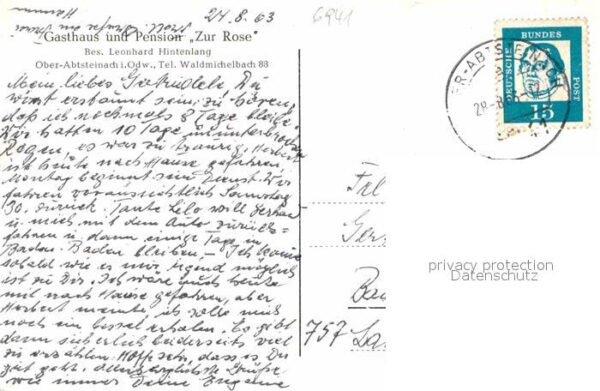 24.8.63
6941
Gasthaus und Pension „Zur Rose"
Bes. Leonhard Hintenlang
Ober-Abtsteinach i. Odw., Tel. Waldmichelbach 88
Mein liebes Gertrudlele, Du
wirst erstaunt sein, zu hören,
daß ich nochmals 8 Tage bleibe.
Wir hatten 10 Tage ununterbrochen
Regen, es war zu traurig. Herbert
ist heute nach Hause gefahren
Montag beginnt sein Dienst. Wir
fahren voraussichtlich Samstag
30. zurück. Tante Lele will Gerhard
u. mich mit dem Auto zurück-
fahren u. dann einige Tage in
Baden-Baden bleiben – Ich komme
sobald wie es mir irgend möglich
ist zu Dir. Ich wäre auch heute
mit nach Hause gefahren, aber
Herbert meinte, ich solle mich
noch ein bissel erholen. Es gibt
dann sicherlich beiderseits viel
zu erzählen. Hoffe sehr, dass es Dir
gut geht. Allerherzlichste Grüße
wie immer Deine
DEUTSCHE BUNDES POST
15
ER-ABTSTEINACH
Frl
Ger
Bad
757
privacy protection
Datenschutz